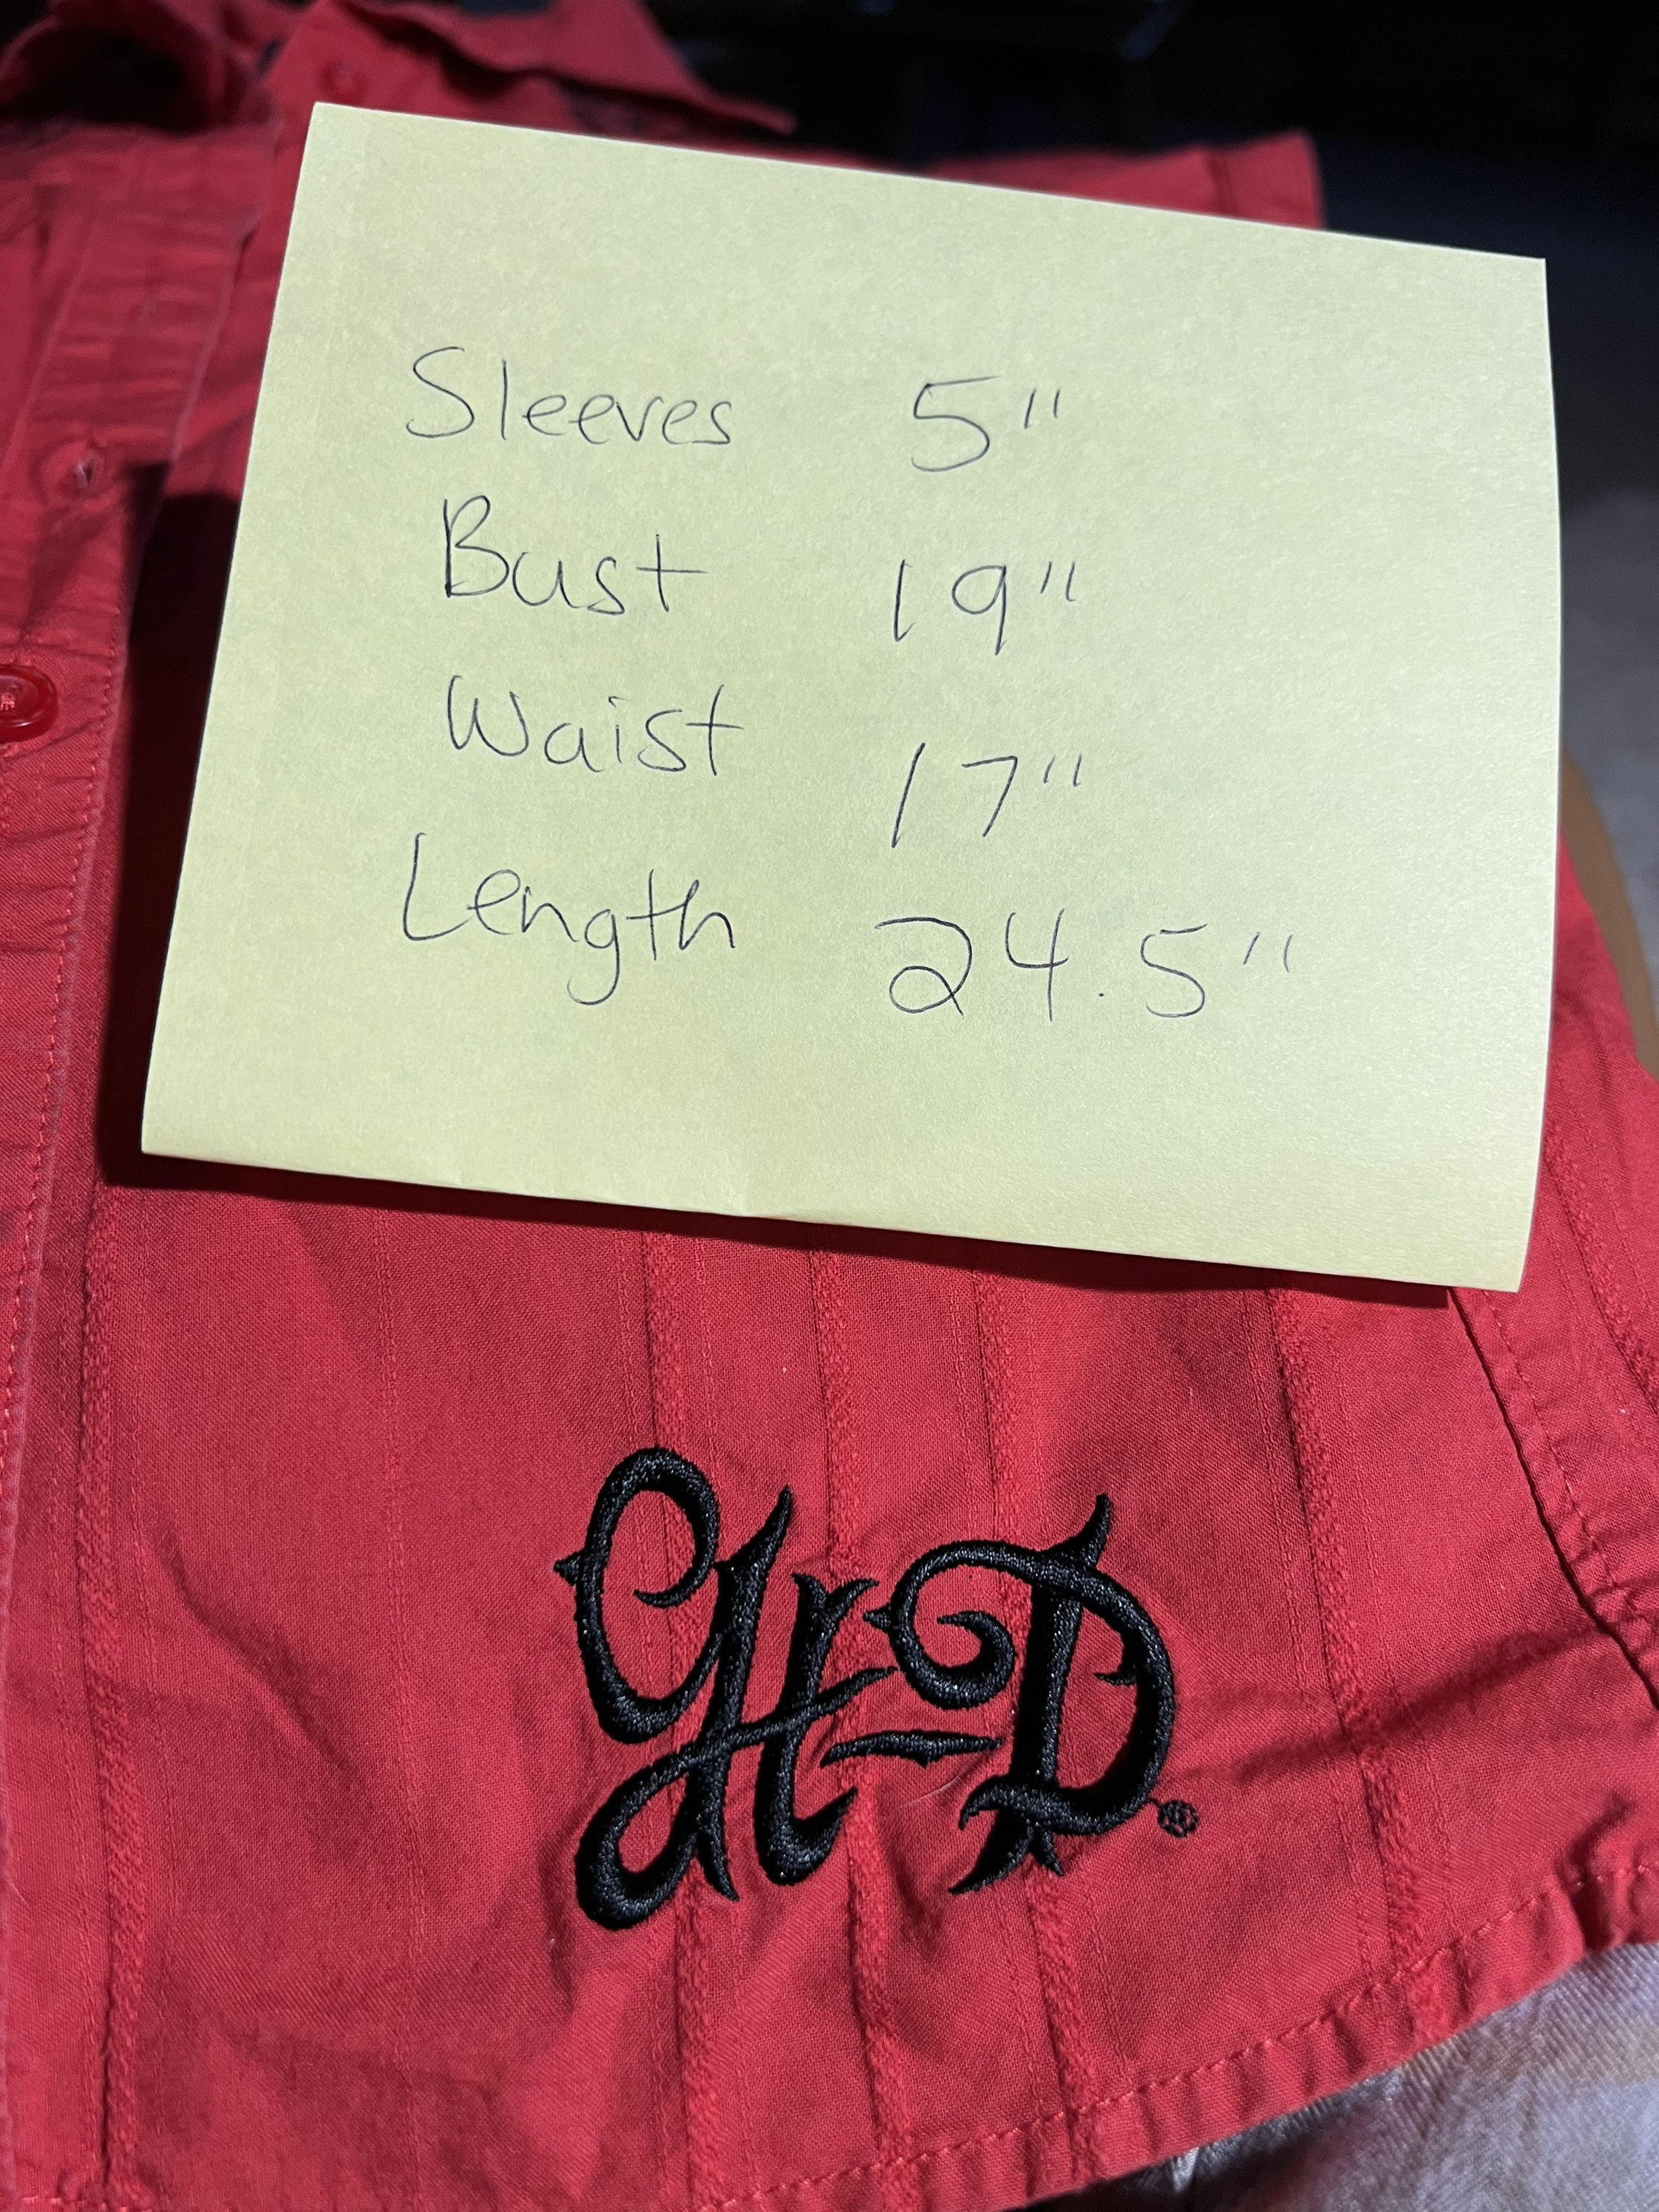 Sleeves 5"
Bust 19"
Waist 17"
Length 24.5"
H-D®